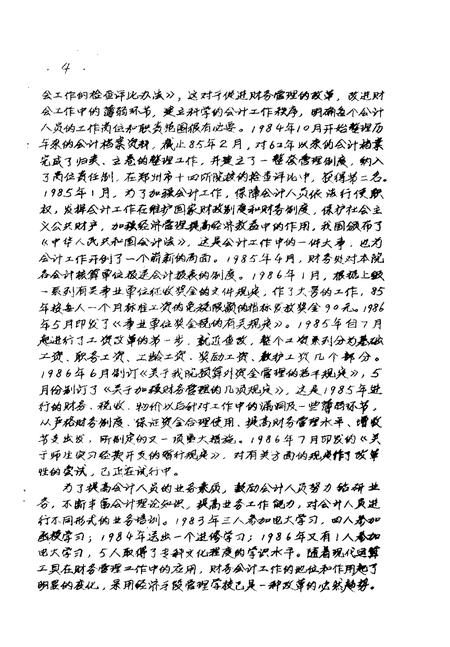 · 4 ·
会工作的检查评比办法》，这对于促进财务管理的改革，改进财
会工作中的薄弱环节，建立科学的会计工作秩序，明确各个会计
人员的工作岗位和职责范围很有必要。1984年10月开始整理历
年来的会计档案资料，截止85年2月，对62年以来的会计档案
完成了归类、立卷的整理工作，并建立了一整套管理制度，纳入
了岗位责任制，在郑州市十四所院校的检查评比中，获得第二名。
1985年1月，为了加强会计工作，保障会计人员依法行使职
权，发挥会计工作在维护国家财政制度和财务制度，保护社会主
义公共财产，加强经济管理提高经济效益中的作用，我国颁布了
《中华人民共和国会计法》，这是会计工作中的一件大事，也为
会计工作开创了一个崭新的局面。1985年4月，财务处对本院
各会计核算单位报送会计报表的制度。1986年1月，根据上级
一系列有关事业单位征收奖金的文件规定，作了大量的工作，85
年按每人一个月标准工资的免税限额的指标发放奖金90元。1986
年5月印发了《事业单位奖金税的有关规定》。1985年自7月
起进行了工资改革的第一步，就近查改，整个工资系列分为基础
工资、职务工资、工龄工资、奖励工资、教护工资几个部分。
1986年6月制订《关于我院预算外资金管理的若干规定》，5
月份制订了《关于加强财务管理的几项规定》，这是1985年进
行的财务、税收、物价以后针对工作中的漏洞及一些薄弱环节，
从严格财务制度、保证资金合理使用、提高财务管理水平、增收
节支出发，所制定的又一项重大措施。1986年7月印发的《关
于师生实习经费开支的暂行规定》，对有关方面的规定作了改革
性的尝试，已正在试行中。
为了提高会计人员的业务素质，鼓励会计人员努力钻研业
务，不断丰富会计理论知识，提高业务工作能力，对会计人员进
行不同形式的业务培训。1983年三人参加电大学习，四人参加
函授学习；1984年送出一个进修学习；1986年又有1人参加
电大学习，5人取得了专科文化程度的学识水平。随着现代运算
工具在财务管理工作中的应用，财务会计工作的地位和作用起了
明显的变化，采用经济手段管理学校已是一种改革的必然趋势。